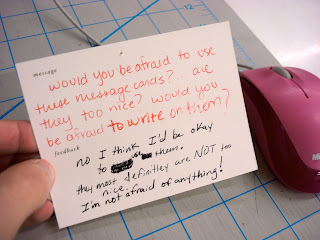 message
would you be afraid to use
these message cards? are
they too nice? would you
be afraid to write on them?
feedback
no I think I'd be okay
to use them.
they most definitley are NOT too
nice.
I'm not afraid of anything!
12